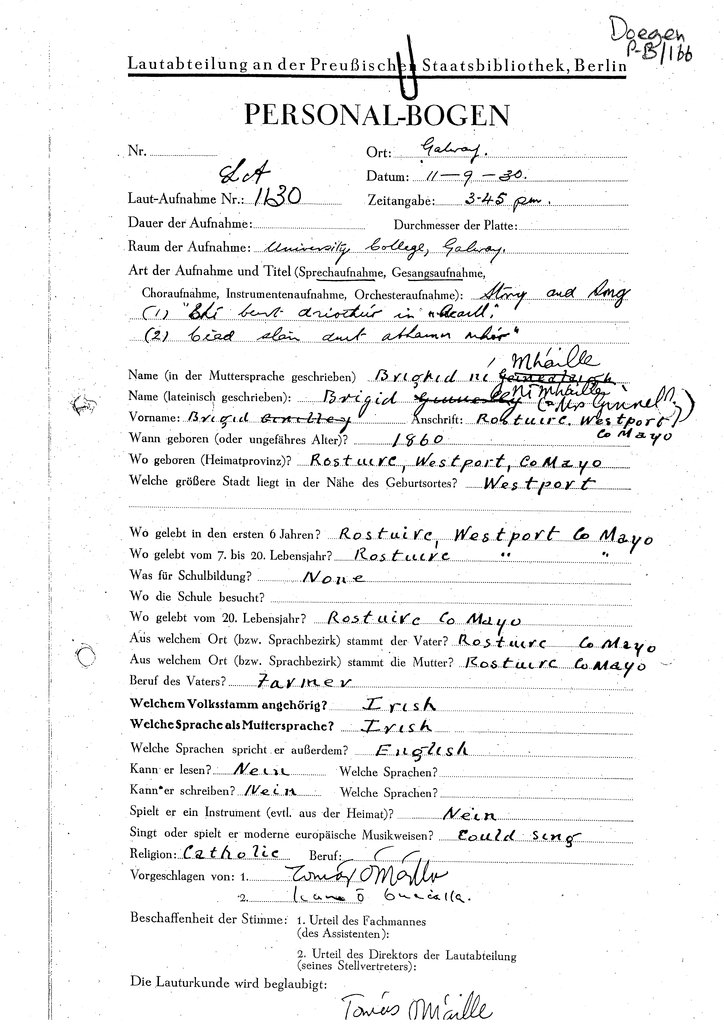 Doegen
P-B/166
Lautabteilung an der Preußischen Staatsbibliothek, Berlin
PERSONAL-BOGEN
Nr. Ort: Galway.
LA Datum: 11-9-30.
Laut-Aufnahme Nr.: 1130 Zeitangabe: 3-45 pm.
Dauer der Aufnahme: Durchmesser der Platte:
Raum der Aufnahme: University College, Galway.
Art der Aufnahme und Titel (Sprechaufnahme, Gesangsaufnahme,
Choraufnahme, Instrumentenaufnahme, Orchesteraufnahme): Story and Song
(1)
(2)
Mháille
Name (in der Muttersprache geschrieben) Brighid ní
Name (lateinisch geschrieben): Brigid Ní Mháille
Vorname: Brigid Anschrift: Rostuirc. Westport
Co Mayo
Wann geboren (oder ungefähres Alter)? 1860
Wo geboren (Heimatprovinz)? Rostuirc, Westport, Co Mayo
Welche größere Stadt liegt in der Nähe des Geburtsortes? Westport
Wo gelebt in den ersten 6 Jahren? Rostuirc, Westport Co Mayo
Wo gelebt vom 7. bis 20. Lebensjahr? Rostuirc " "
Was für Schulbildung? None
Wo die Schule besucht?
Wo gelebt vom 20. Lebensjahr? Rostuirc Co Mayo
Aus welchem Ort (bzw. Sprachbezirk) stammt der Vater? Rostuirc Co Mayo
Aus welchem Ort (bzw. Sprachbezirk) stammt die Mutter? Rostuirc Co Mayo
Beruf des Vaters? Farmer
Welchem Volksstamm angehörig? Irish
Welche Sprache als Muttersprache? Irish
Welche Sprachen spricht er außerdem? English
Kann er lesen? Nein Welche Sprachen?
Kann er schreiben? Nein Welche Sprachen?
Spielt er ein Instrument (evtl. aus der Heimat)? Nein
Singt oder spielt er moderne europäische Musikweisen? Could sing
Religion: Catholic Beruf:
Vorgeschlagen von: 1. Tomás Ó Máille
2.
Beschaffenheit der Stimme: 1. Urteil des Fachmannes
(des Assistenten):
2. Urteil des Direktors der Lautabteilung
(seines Stellvertreters):
Die Lauturkunde wird beglaubigt:
Tomás Ó Máille